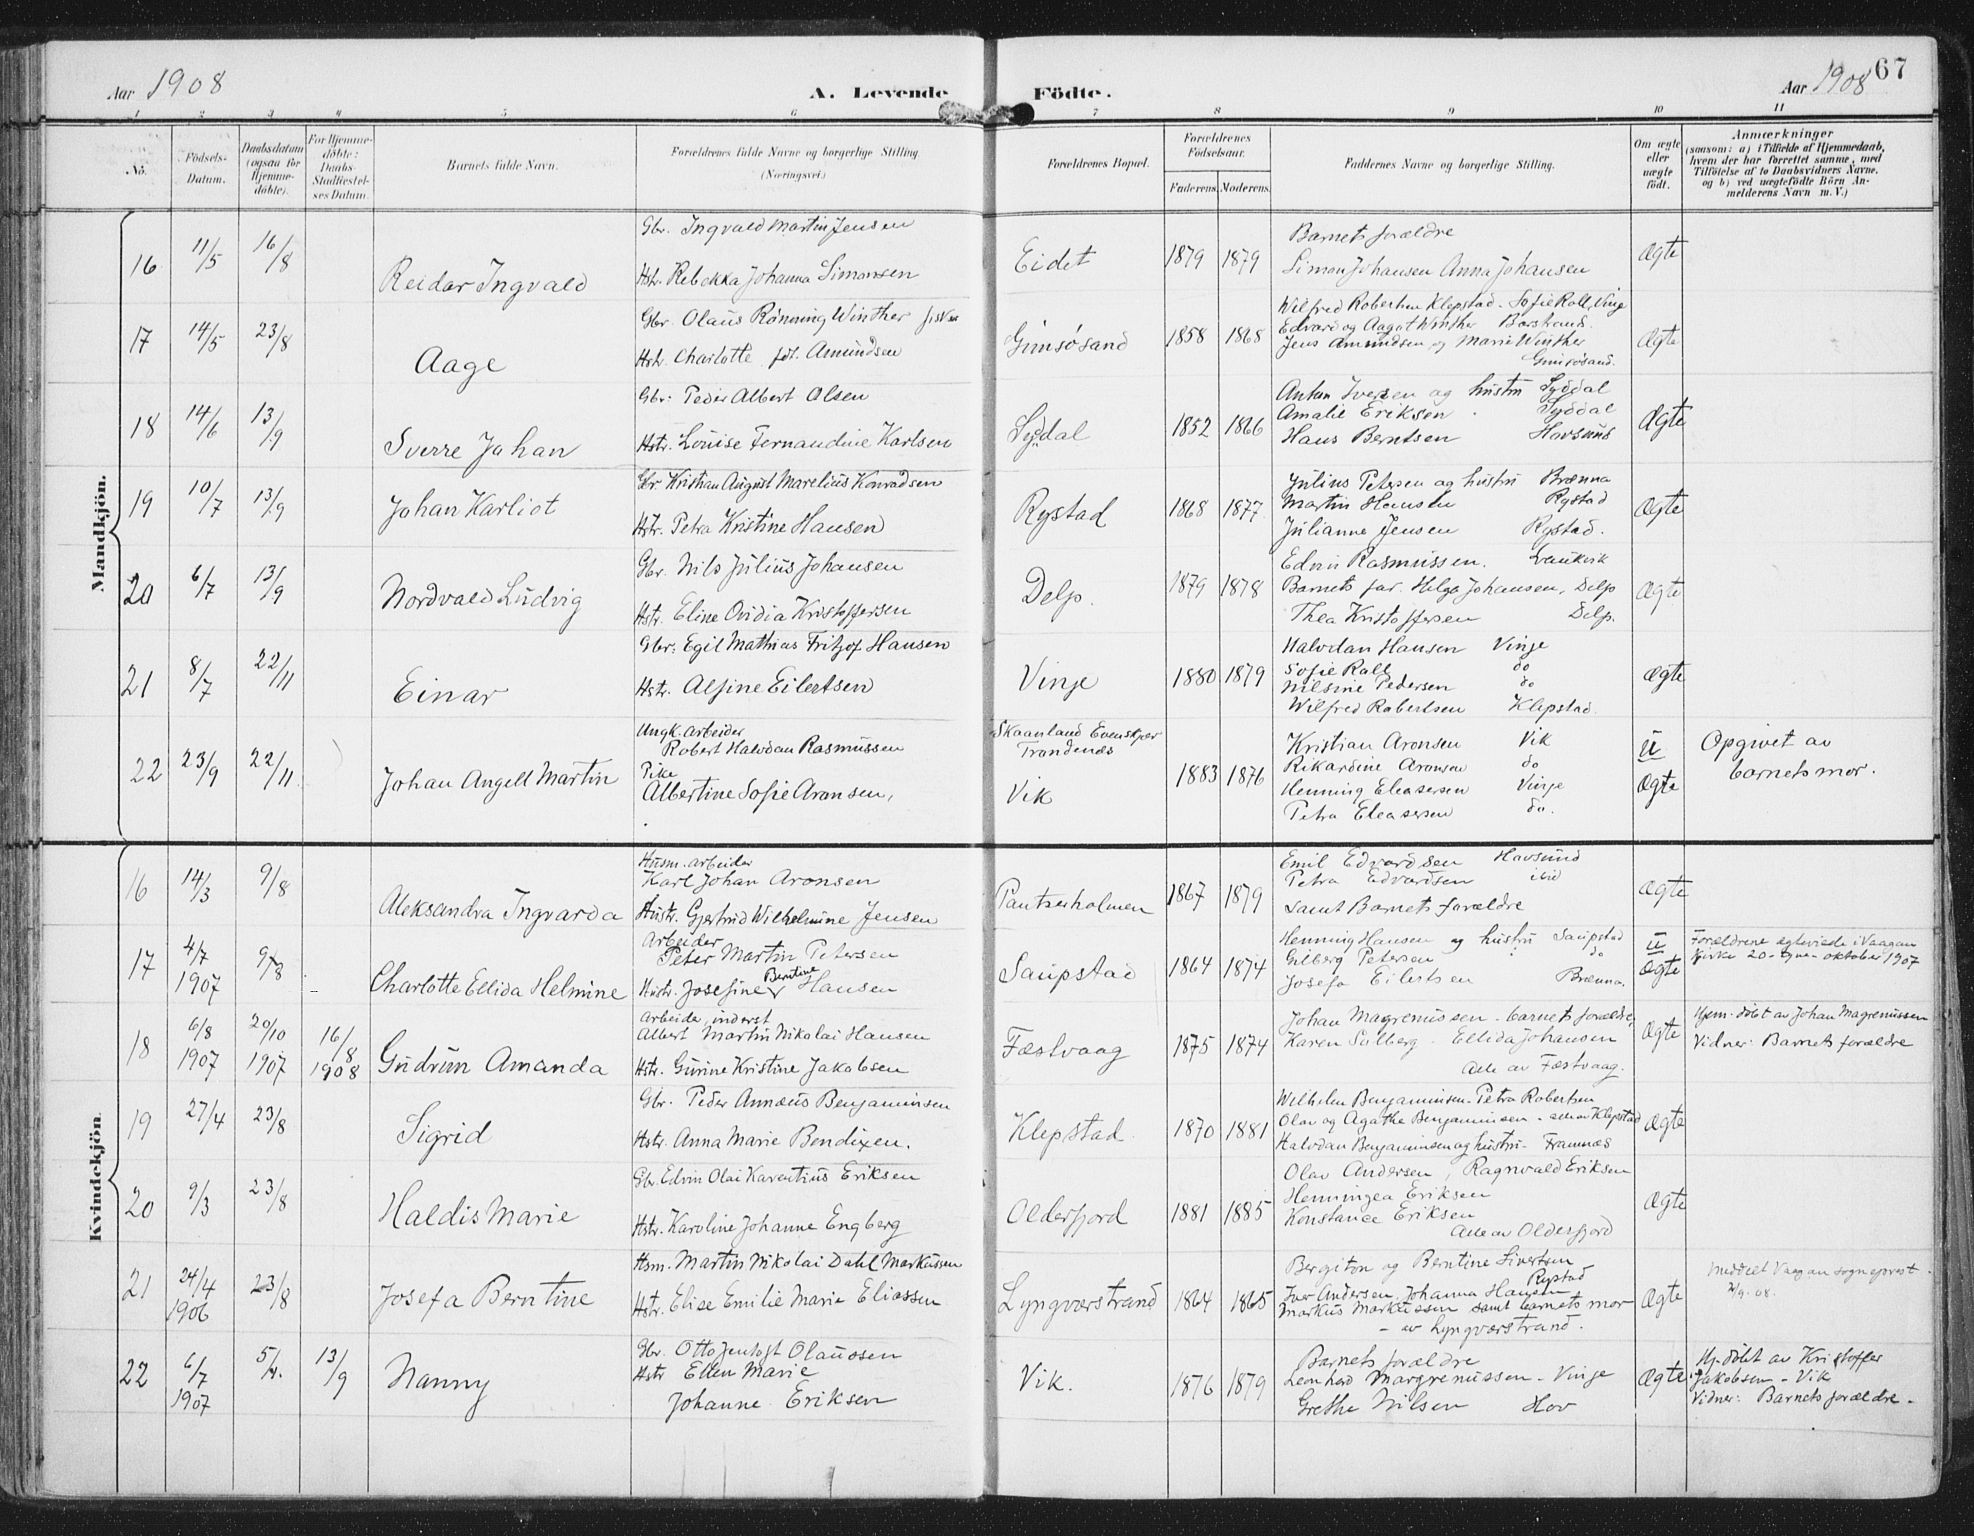 Aar 1908
A. Levende Födte.
Aar 1908
67
1 2 3 4 5 6 7 8 9 10 11
No.
Födsels-Datum.
Daabsdatum (ogsaa for Hjemme-döbte).
For Hjemme-döbte: Daabs-Stadfæstel-ses Datum.
Barnets fulde Navn.
Forældrenes fulde Navne og borgerlige Stilling (Næringsvei.)
Forældrenes Bopæl.
Forældrenes Födselsaar.
Faderens. Moderens.
Faddernes Navne og borgerlige Stilling.
Om ægte eller uægte födt.
Anmærkninger
(saasom: a) i Tilfælde af Hjemmedaab,
hvem der har forrettet samme, med
Tilföielse af to Daabsvidners Navne,
og b) ved uægtefödte Börn An-
melderens Navn m. V.)
Mandkjön.
16 11/5 16/8 Reidar Ingvald
Gbr. Ingvald Martin Jensen
Hstr. Rebekka Johanna Simonsen
Eidet 1879 1879
Barnets forældre
Simon Johansen Anna Johansen
Ægte
17 14/5 23/8 Aage
Gbr. Olaus Rönning Winther fisker
Hstr. Charlotte föt. Amundsen
Gimsösand 1858 1868
Wilfred Robertsen Klepstad. Sofie Roll, Vinje
Edvard og Aagot Winther Borstrand.
Jens Amundsen og Marie Winther
Gimsösand.
Ægte
18 14/6 13/9 Sverre Johan
Gbr: Peder Albert Olsen
Hstr. Louise Fernandine Karlsen
Sydal 1852 1866
Anton Iversen og hustru Syddal
Amalie Eriksen Syddal
Hans Berntsen Hovsund
Ægte
19 10/7 13/9 Johan Karliot
Gbr. Kristian August Marelius Konradsen
Hstr. Petra Kristine Hansen
Rystad 1868 1877
Julius Petersen og hustru Brenna
Martin Hansen Rystad
Julianne Jensen Rystad.
Ægte
20 6/7 13/9 Nordvald Ludvig
Gbr. Nils Julius Johansen
Hstr. Eline Ovidia Kristoffersen
Delp. 1879 1878
Edvin Rasmussen. Laukvik
Barnets far. Helga Johansen, Delp
Thea Kristoffersen Delp.
Ægte
21 8/7 22/11 Einar
Gbr: Egil Mathias Fritjof Hansen
Hstr. Alfine Eilertsen
Vinje 1880 1879
Halvdan Hansen Vinje
Sofie Rall do
Nilsine Pedersen do
Wilfred Robertsen Klepstad.
Ægte
22 23/9 22/11 Johan Angell Martin
Ungk. arbeider
Robert Halvdan Rasmussen
Pike
Albertine Sofie Aronsen,
Skaanland Evenskjer
Trondenæs
Vik
1883 1876
Kristian Aronsen Vik
Rikardine Aronsen do
Henning Eleasersen Vinje
Petra Eleasersen do.
U
Ægte
Opgivet av
barnets mor.
Kvindekjön
16 14/3 9/8 Aleksandra Ingvarda
Husm. arbeider
Karl Johan Aronsen
Hustr. Gjertrud Wilhelmine Jensen
Pantserholmen 1867 1879
Emil Edvardsen Hovsund
Petra Edvardsen ibid
samt Barnets forældre
Ægte
17 4/7 1907 9/8 Charlotte Ellida Helmine
Arbeider
Peter Martin Petersen
Hustr. Josefine Berntine Hansen
Saupstad 1864 1874
Henning Hansen og hustru Saupstad
Gilberg Petersen do
Josefa Eilertsen Brenna.
U
Ægte
Forældrene ægteviede i Vaagan
kirke 20-tyve- oktober 1907
18 6/8 1907 20/10 1907 16/8 1908 Gudrun Amanda
Arbeider, inderst
Albert Martin Nikolai Hansen
Hstr. Gurine Kristine Jakobsen
Fæstvaag 1875 1874
Johan Magremussen - barnets forældre,
Karen Solberg. Ellida Johansen
Alle av Fæstvaag.
Ægte
Hjem. döbt av Johan Magremussen
Vidner: Barnets forældre
19 27/4 23/8 Sigrid
Gbr. Peder Annæus Benjaminsen
Hstr. Anna Marie Bendixen.
Klepstad. 1870 1881
Wilhelm Benjaminsen. Petra Robertsen
Olav og Agathe Benjaminsen - alle av Klepstad
Halvdan Benjaminsen og hustru - Framnæs
Ægte
20 9/3 23/8 Haldis Marie
Gbr. Edvin Olai Karentius Eriksen
Hstr. Karoline Johanne Engberg
Olderfjord 1881 1885
Olav Andersen, Ragnvald Eriksen
Henningea Eriksen
Konstance Eriksen
Alle av Olderfjord
Ægte
21 24/4 1906 23/8 Josefa Berntine
Hsm. Martin Nikolai Dahl Markussen
Hstr. Elise Emilie Marie Eliassen
Lyngværstrand 1864 1865
Bergiton og Berntine Sivertsen
Rystad
Iver Andersen, Johanna Hansen
Markus Markussen samt barnets mor
- av Lyngværstrand.
Ægte
Meddelt Vaagan sogneprest.
22 6/7 1907 13/9 Nanny
Gbr. Otto Jentoft Olausen
Hstr Ellen Marie
Johanne Eriksen
Vik. 1876 1879
Barnets forældre
Leonhard Margremussen - Vinje
Grethe Nilsen Hov
Ægte
Hj. döbt av Kristoffer
Jakobsen - Vik
Vidner: Barnets forældre.